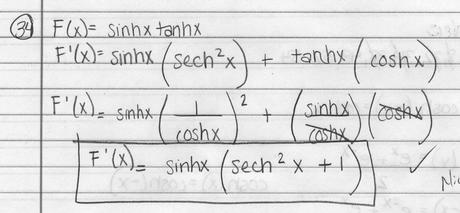 34 F(x)= sinhx tanhx
F'(x)= sinhx (sech²x) + tanhx (coshx)
F'(x)= sinhx (1/coshx)² + (sinhx/coshx)(coshx)
F'(x)= sinhx (sech² x + 1) ✓